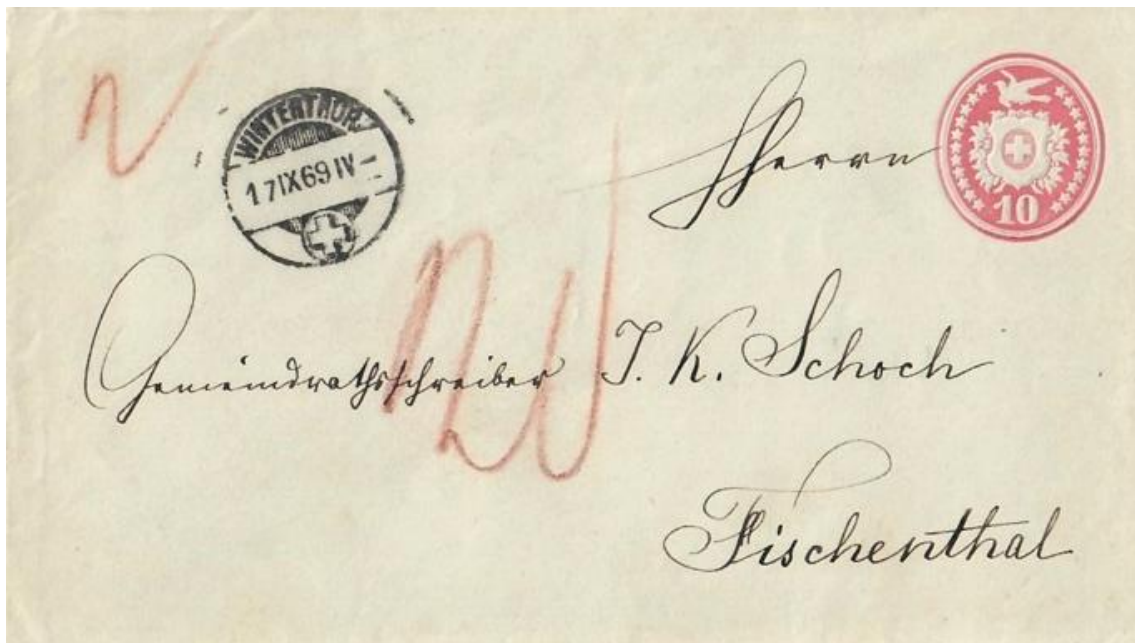 WINTERTHUR
17 IX 69 IV –
10
Herrn
Gemeindrathsschreiber J. K. Schoch
Fischenthal